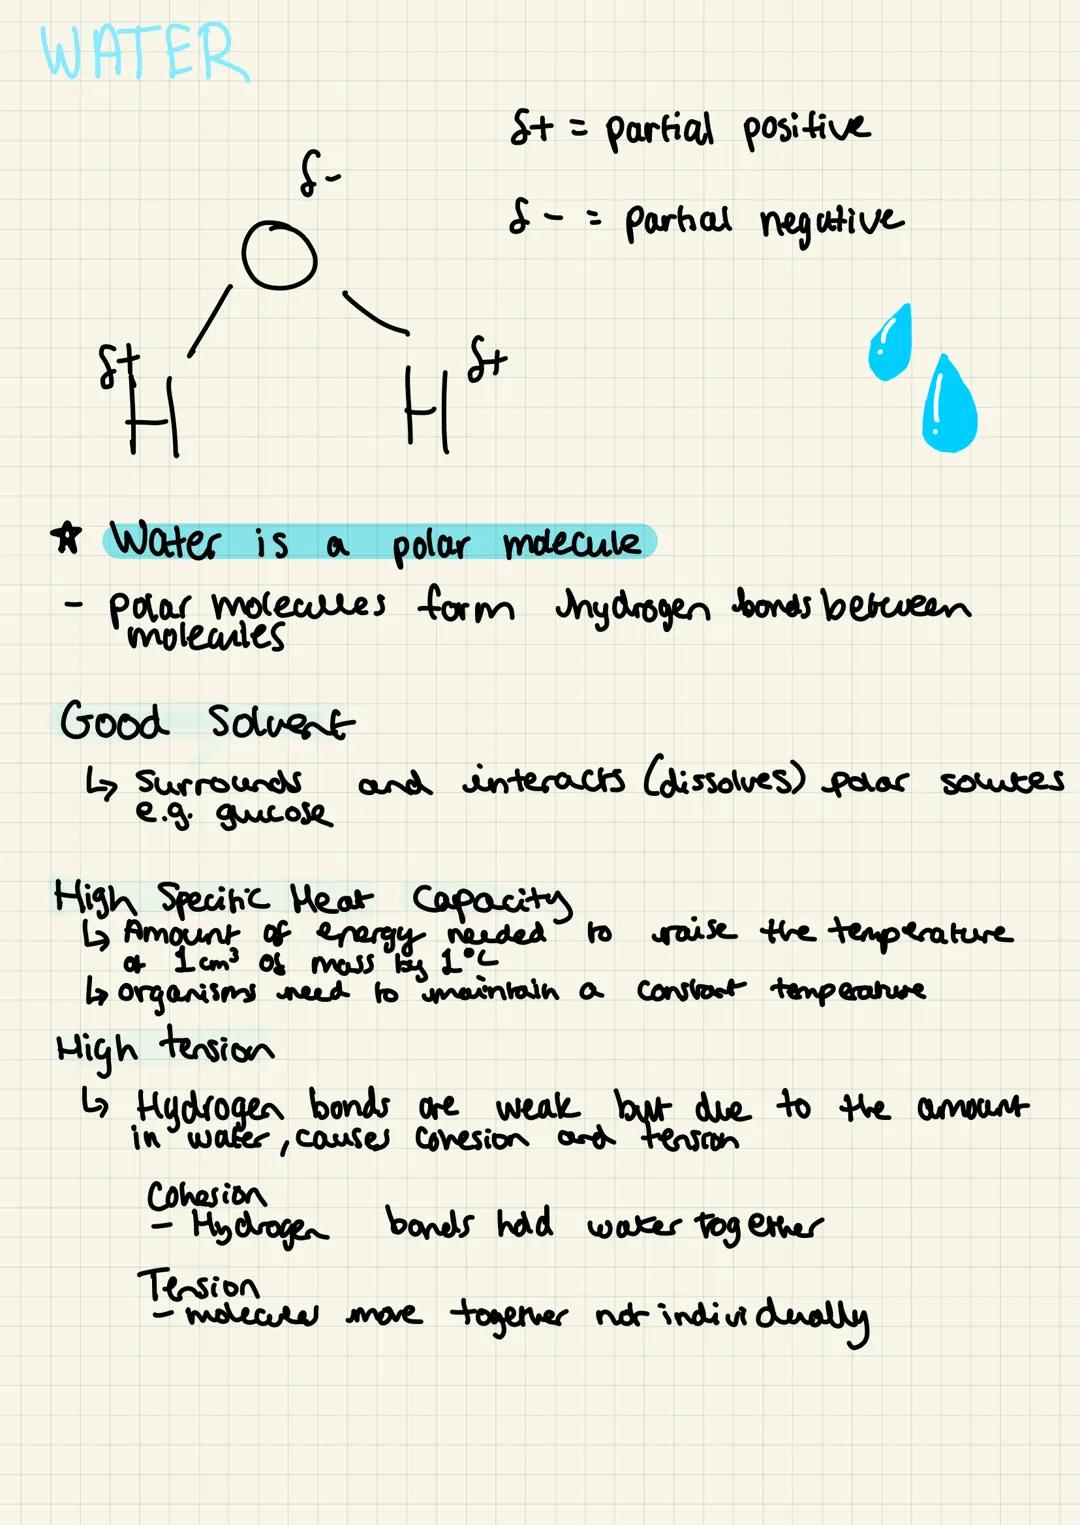 WATER
δ+ = partial positive
δ-
δ - = partial negative
O
δ+
δ+
H
H
☆ Water is a polar molecule
- polar molecules form hydrogen bonds between
molecules
Good Solvent
↳ Surrounds and interacts (dissolves) polar solutes
e.g. glucose
High Specific Heat Capacity
↳ Amount of energy needed to raise the temperature
of 1cm³ of mass by 1°C
↳ organisms need to maintain a constant temperature
High tension
↳ Hydrogen bonds are weak but due to the amount
in water, causes cohesion and tension
Cohesion
- Hydrogen bonds hold water together
Tension
- molecules move together not individually